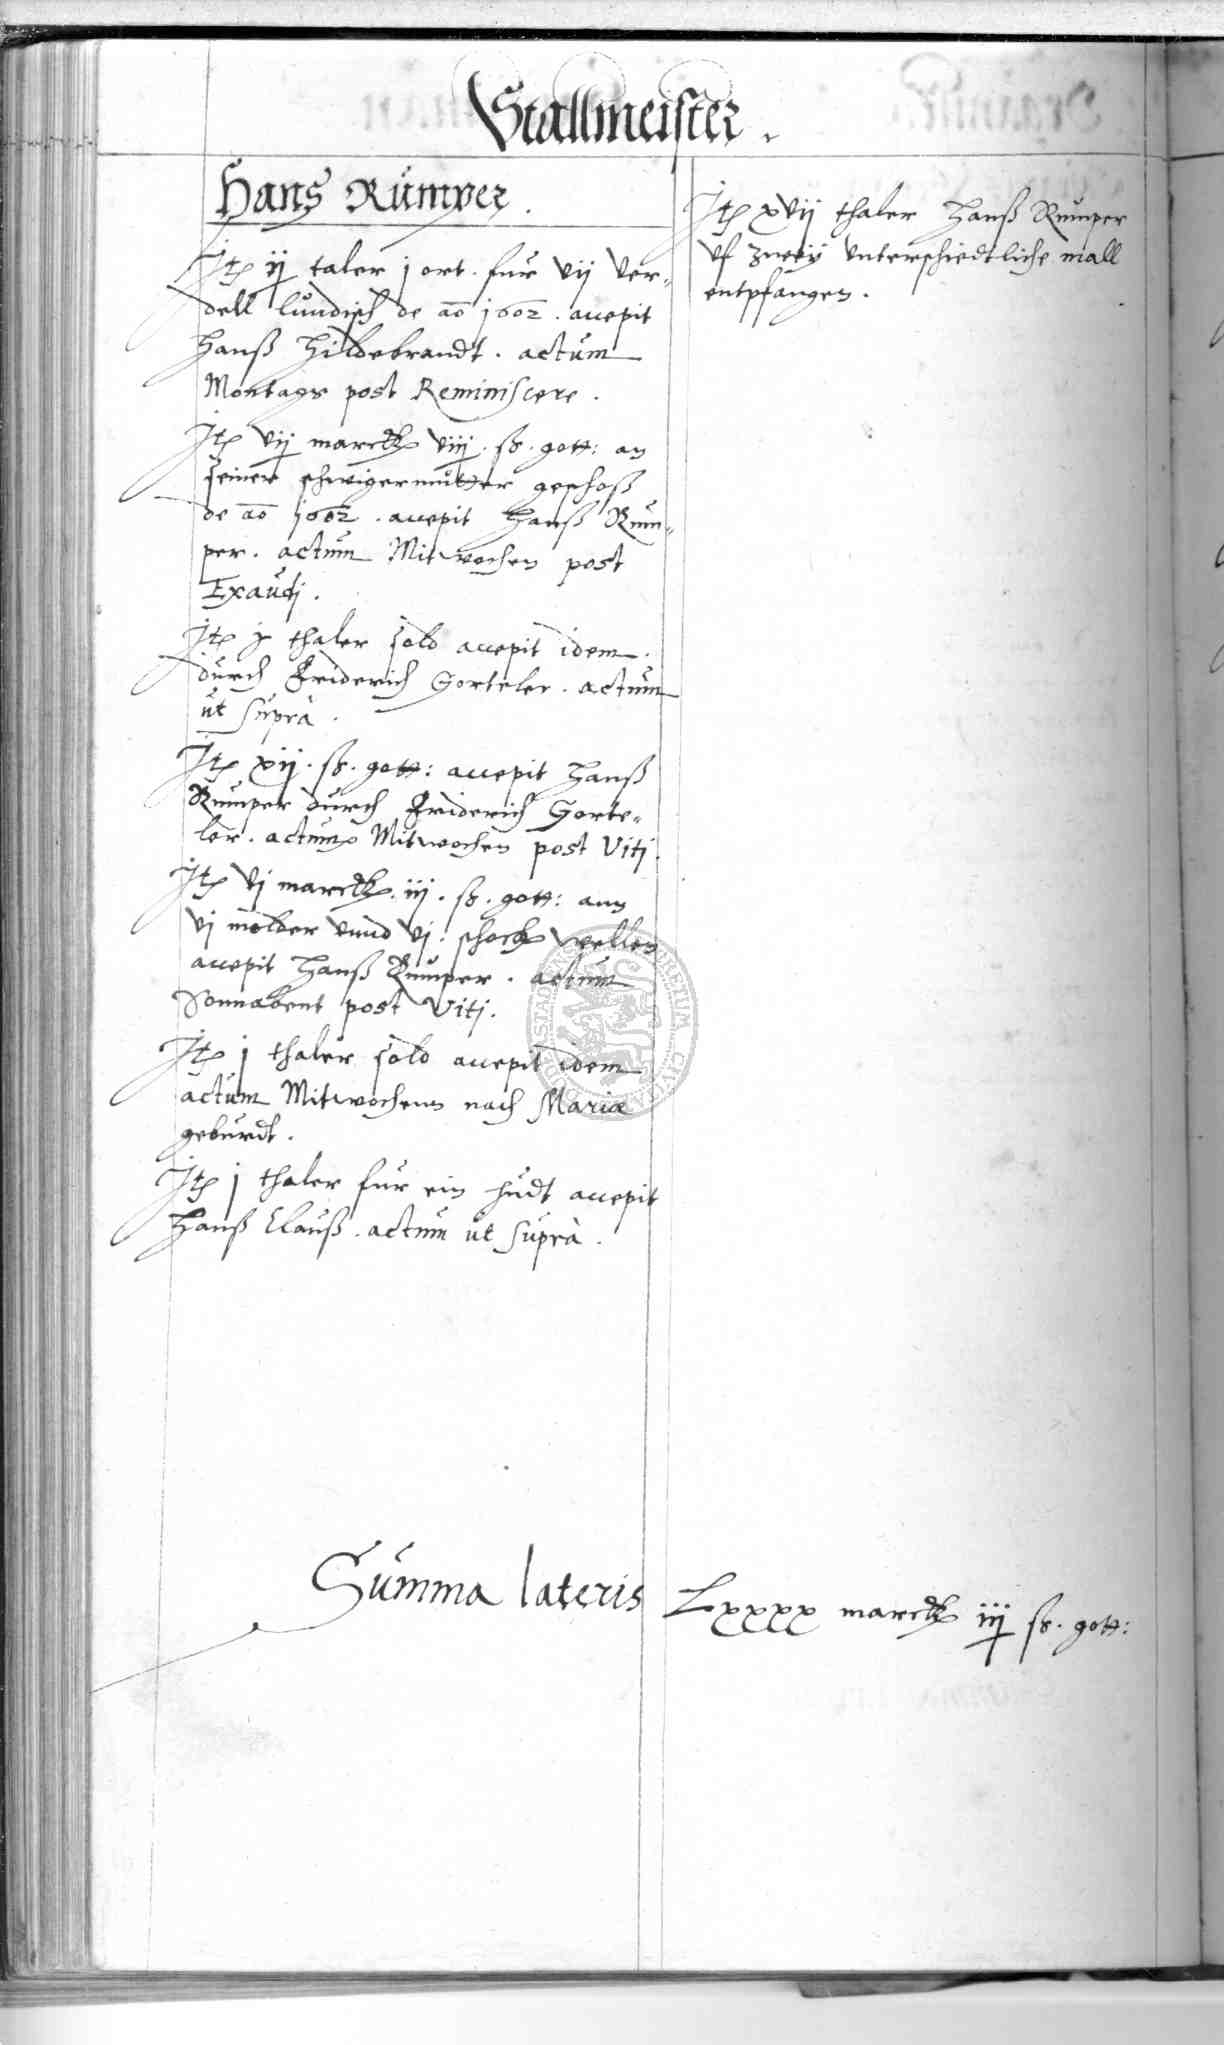 Stallmeister.
Hans Rümper.
Itē ij taler j ort. fur vij ver„
dell lundisch de ao 1602. accepit
Hanß Hildebrandt. actum
Montags post Reminiscere.
Itē vij marck viij. ß. gott: an
seiner schwigermutter geschoß
de ao 1602. accepit Hanß Rum„
per. actum Mitwochen post
Exaudj.
Itē thaler sold accepit idem.
durch Friderich Gorteler. actum
ut supra.
Itē xij. ß. gott: accepit Hanß
Rumper durch Friderich Gorte„
ler. actum Mitwochen post Vitj.
Itē vj marck. iij. ß. gott: ann
vj molder vnnd vj. schock wellen
accepit Hanß Rumper. actum
Sonnabent post Vitj.
Itē j thaler sold accepit idem
actum Mitwochens nach Mariæ
geburdt.
Itē j thaler fur ein hudt accepit
Hanß Clauß. actum ut supra.
Itē xvij thaler Hanß Rumper
vf zweÿ vnterschiedtliche mall
entpfangen.
Summa lateris Lxxxx marck iij ß. gott: